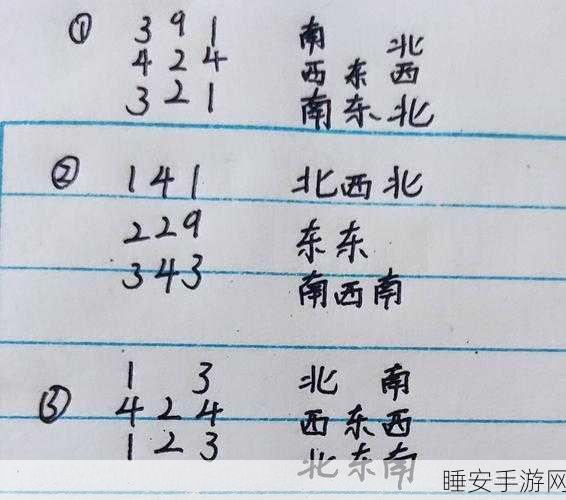 ① 3 9 1 南 北
4 2 4 西 东 西
3 2 1 南 东 北
② 1 4 1 北 西 北
2 2 9 东 东
3 4 3 南 西 南
③ 1 3 北 南
4 2 4 西 东 西
1 2 3 北 东 南
睡安手游网